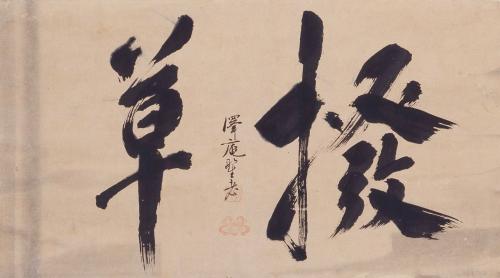 撥草
澤庵野老